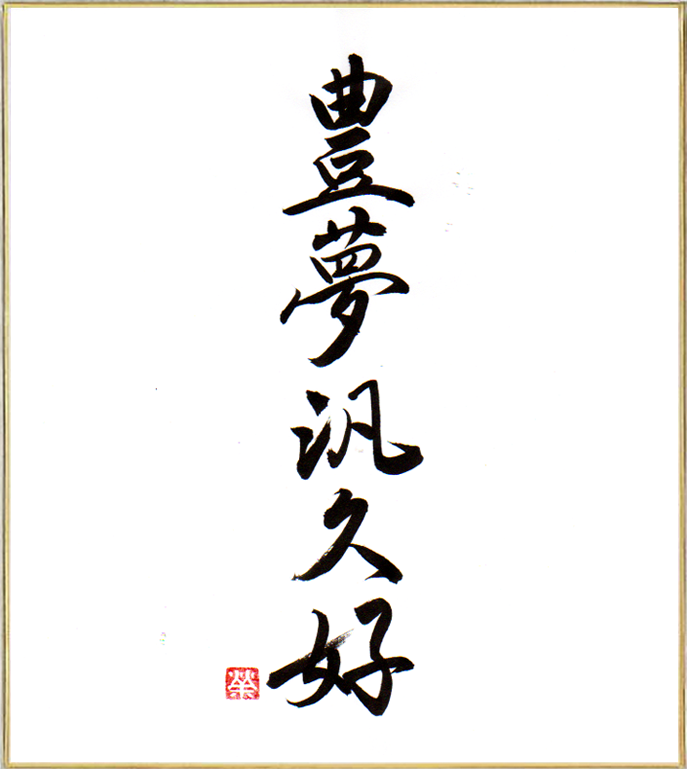 豊夢汎久好
榮